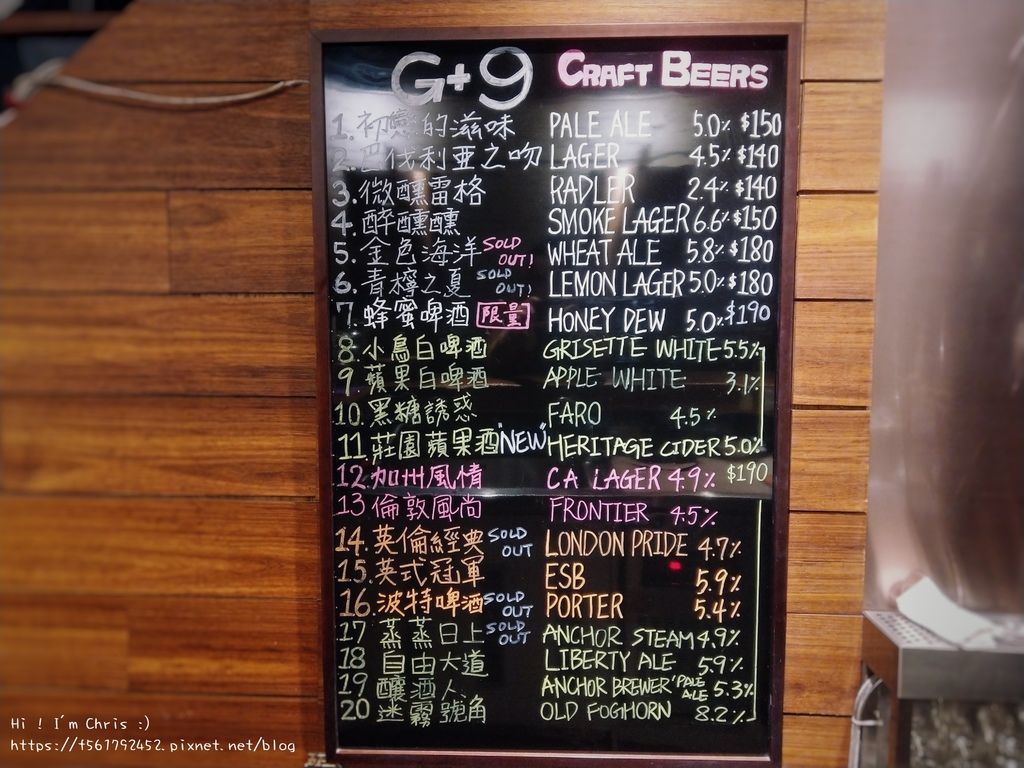 G+9 CRAFT BEERS
1. 初戀的滋味 PALE ALE 5.0% $150
2. 巴伐利亞之吻 LAGER 4.5% $140
3. 微醺雷格 RADLER 2.4% $140
4. 醉醺醺 SMOKE LAGER 6.6% $150
5. 金色海洋 SOLD OUT! WHEAT ALE 5.8% $180
6. 青檸之夏 SOLD OUT! LEMON LAGER 5.0% $180
7. 蜂蜜啤酒 限量 HONEY DEW 5.0% $190
8. 小鳥白啤酒 GRISETTE WHITE 5.5%
9. 蘋果白啤酒 APPLE WHITE 3.1%
10. 黑糖誘惑 FARO 4.5%
11. 莊園蘋果酒 "NEW" HERITAGE CIDER 5.0%
12. 加州風情 CA LAGER 4.9% $190
13 倫敦風尚 FRONTIER 4.5%
14. 英倫經典 SOLD OUT LONDON PRIDE 4.7%
15. 英式冠軍 ESB 5.9%
16. 波特啤酒 SOLD OUT PORTER 5.4%
17 蒸蒸日上 SOLD OUT ANCHOR STEAM 4.9%
18 自由大道 LIBERTY ALE 5.9%
19 釀酒人 ANCHOR BREWER' PALE ALE 5.3%
20 迷霧號角 OLD FOGHORN 8.2%
Hi ! I'm Chris :)
https://t561792452.pixnet.net/blog